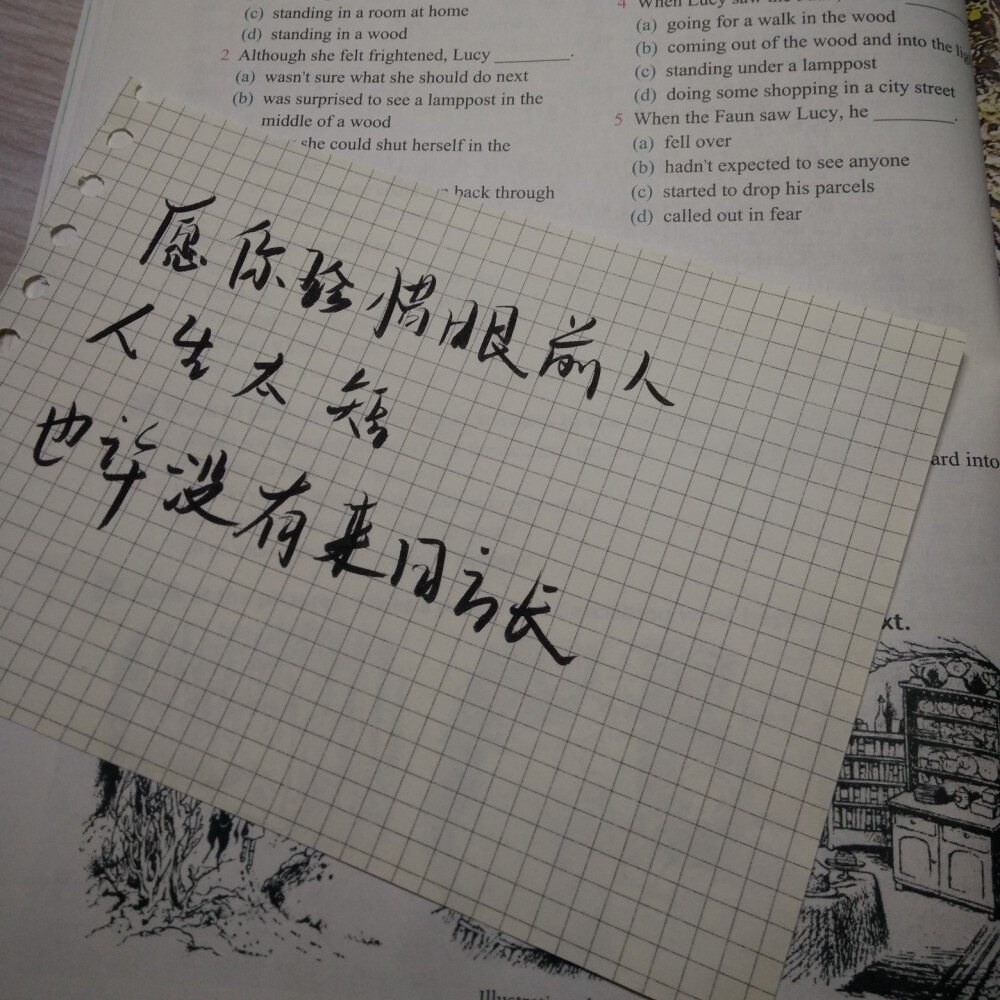 (c) standing in a room at home
(d) standing in a wood
2 Although she felt frightened, Lucy ________.
(a) wasn't sure what she should do next
(b) was surprised to see a lamppost in the
middle of a wood
she could shut herself in the
back through
4 When Lucy saw the
(a) going for a walk in the wood
(b) coming out of the wood and into the
(c) standing under a lamppost
(d) doing some shopping in a city street
5 When the Faun saw Lucy, he ________.
(a) fell over
(b) hadn't expected to see anyone
(c) started to drop his parcels
(d) called out in fear
愿你珍惜眼前人
人生太短
也许没有来日方长
into